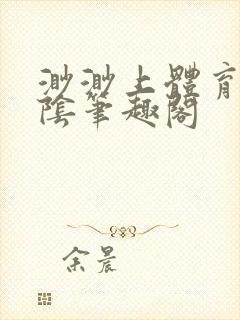 渺渺上體育
陰筆趣閣
余晨